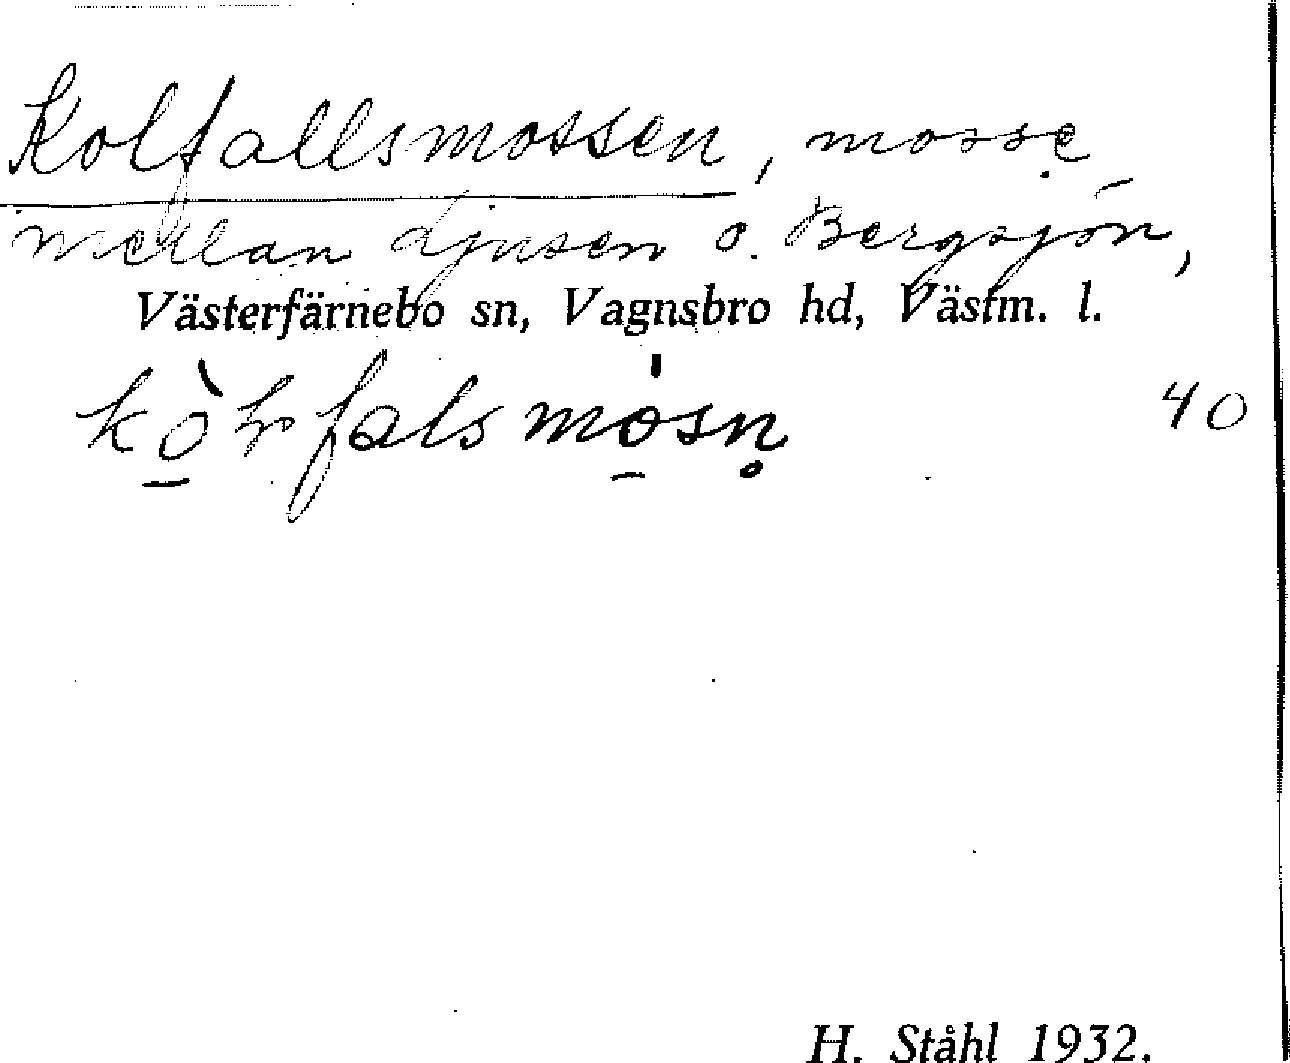 Kolfallsmossen, mosse
mellan Ljusen o. Bergsjön,
Västerfärnebo sn, Vagnsbro hd, Västm. l.
40
H. Ståhl 1932.